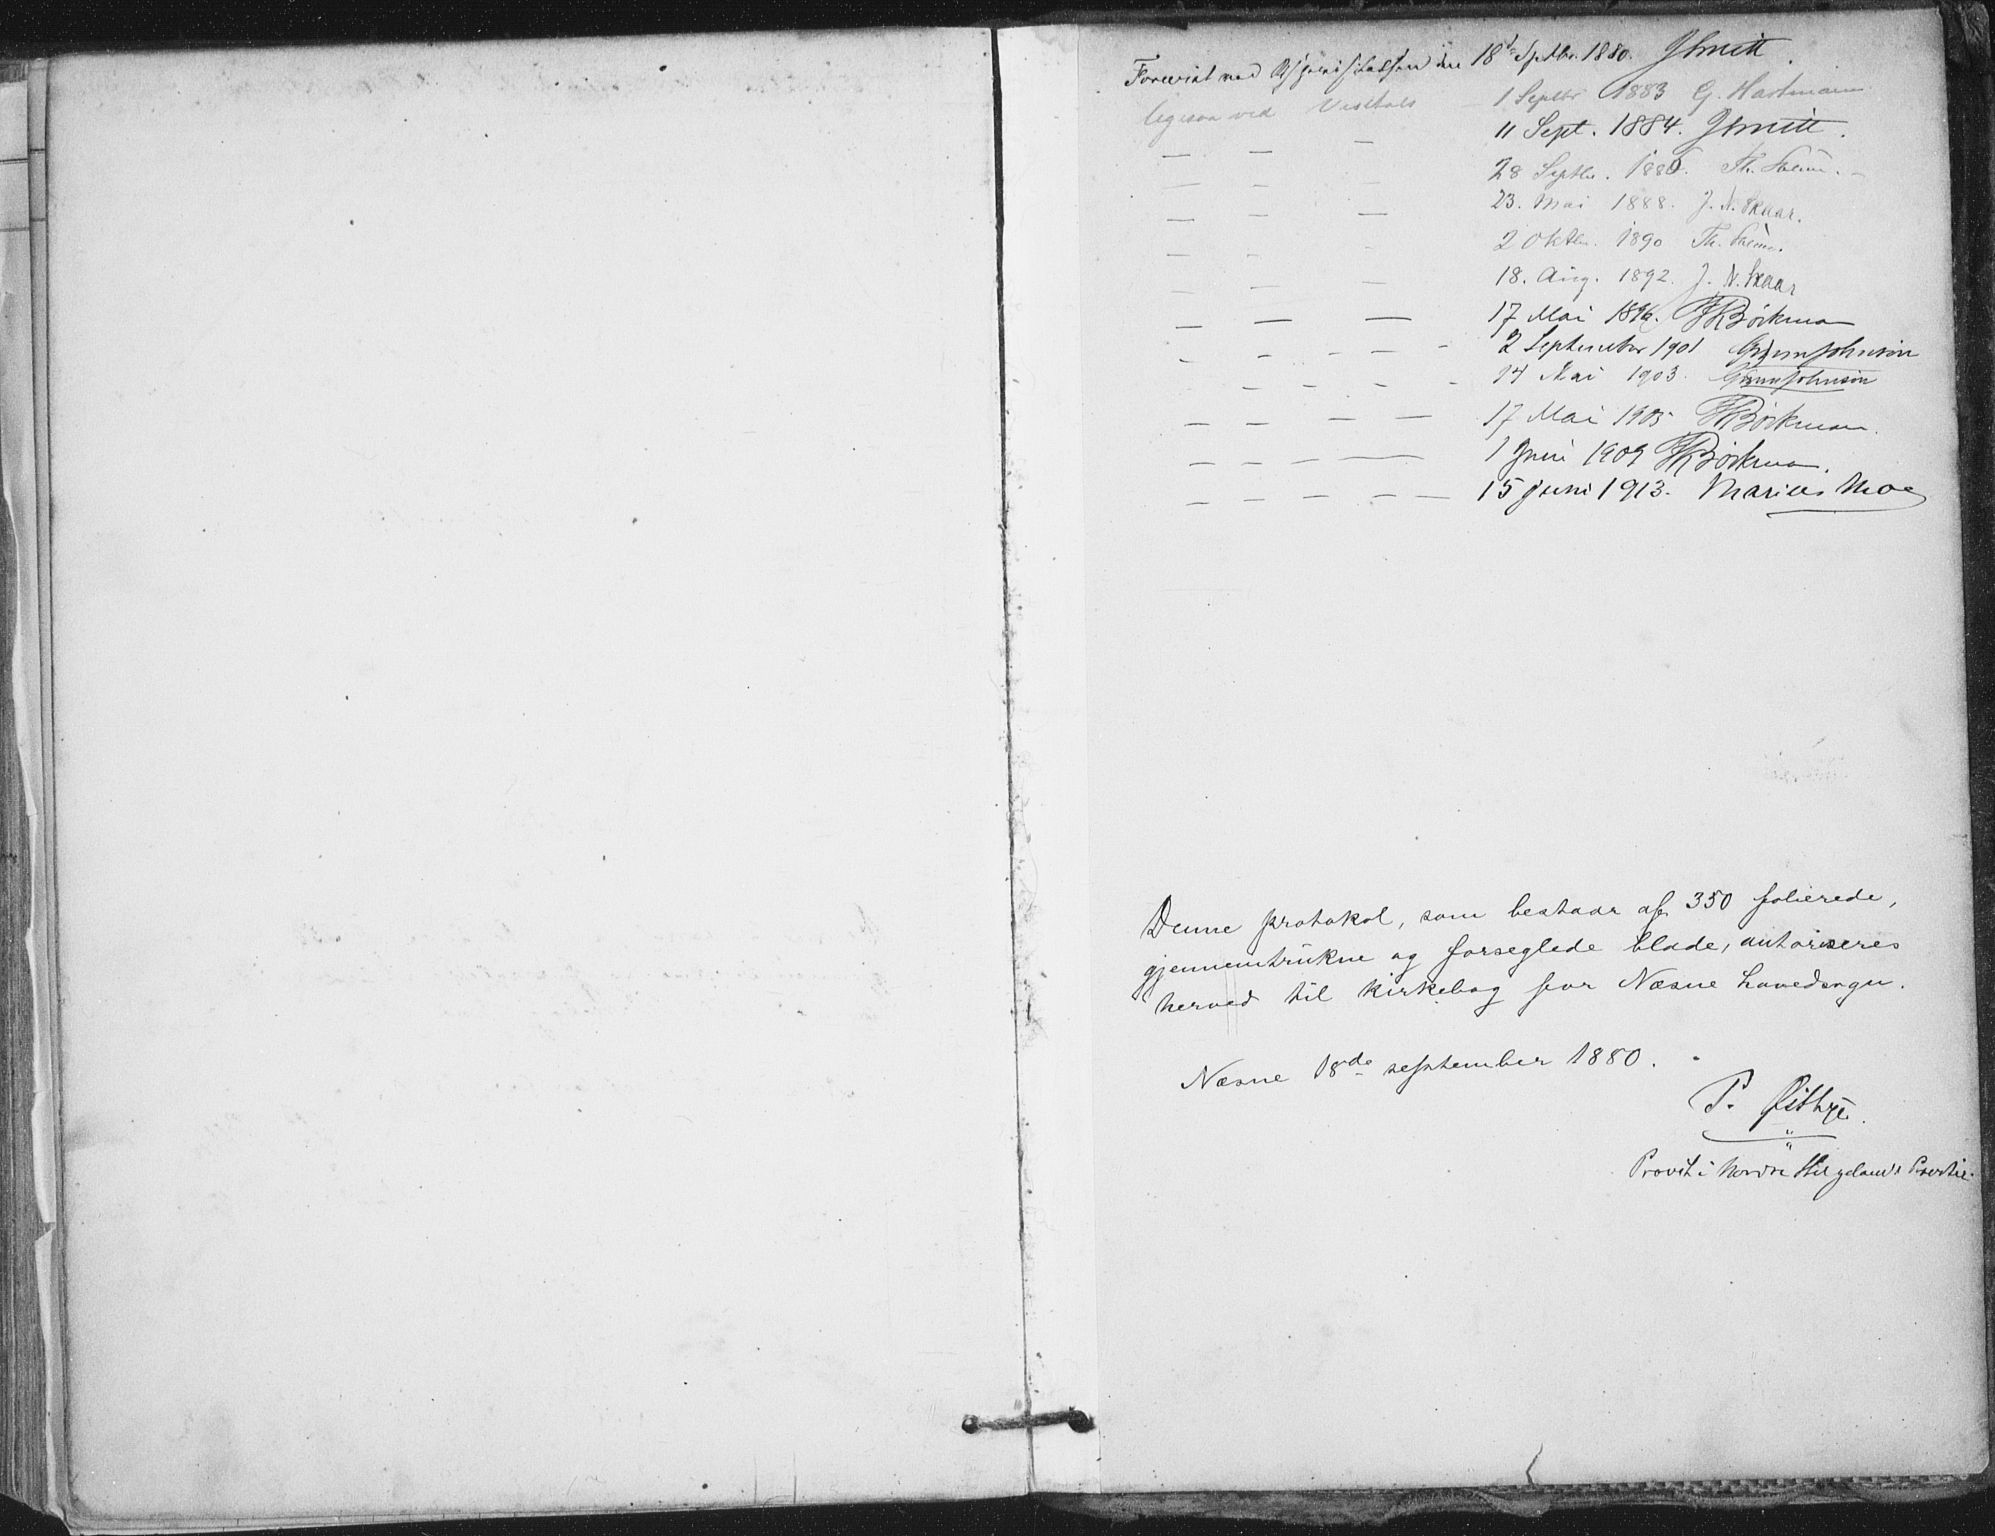 Forevist ved Bispevisitatsen den 18de Septbr. 1880. JSmitt.
ligesaa ved Visitats — 1 Septbr 1883 G. Hartmann
— — — 11 Sept. 1884. JSmitt.
— — — 28 Septbr. 1885. Th.
— — — 23. Mai 1888. J. N. Skaar.
— — — 2 Oktbr. 1890 Th.
— — — 18. Aug. 1892. J. N. Skaar
— — — 17 Mai 1896. Bøckman
— — — — — 2 September 1901
— — — — — 14 Mai 1903.
— — — — 17 Mai 1905 Bøckman.
— — — — 1 Juni 1909 Bøckman.
— — — — — 15 juni 1913. Marius Moe
Denne protokol, som bestaar af 350 folierede,
gjennemtrukne og forseglede blade, autoriseres
herved til kirkebog for Næsne hovedsogn.
Næsne 18de september 1880.
P. Østbye.
Provst i Nordre Helgelands Provsti.